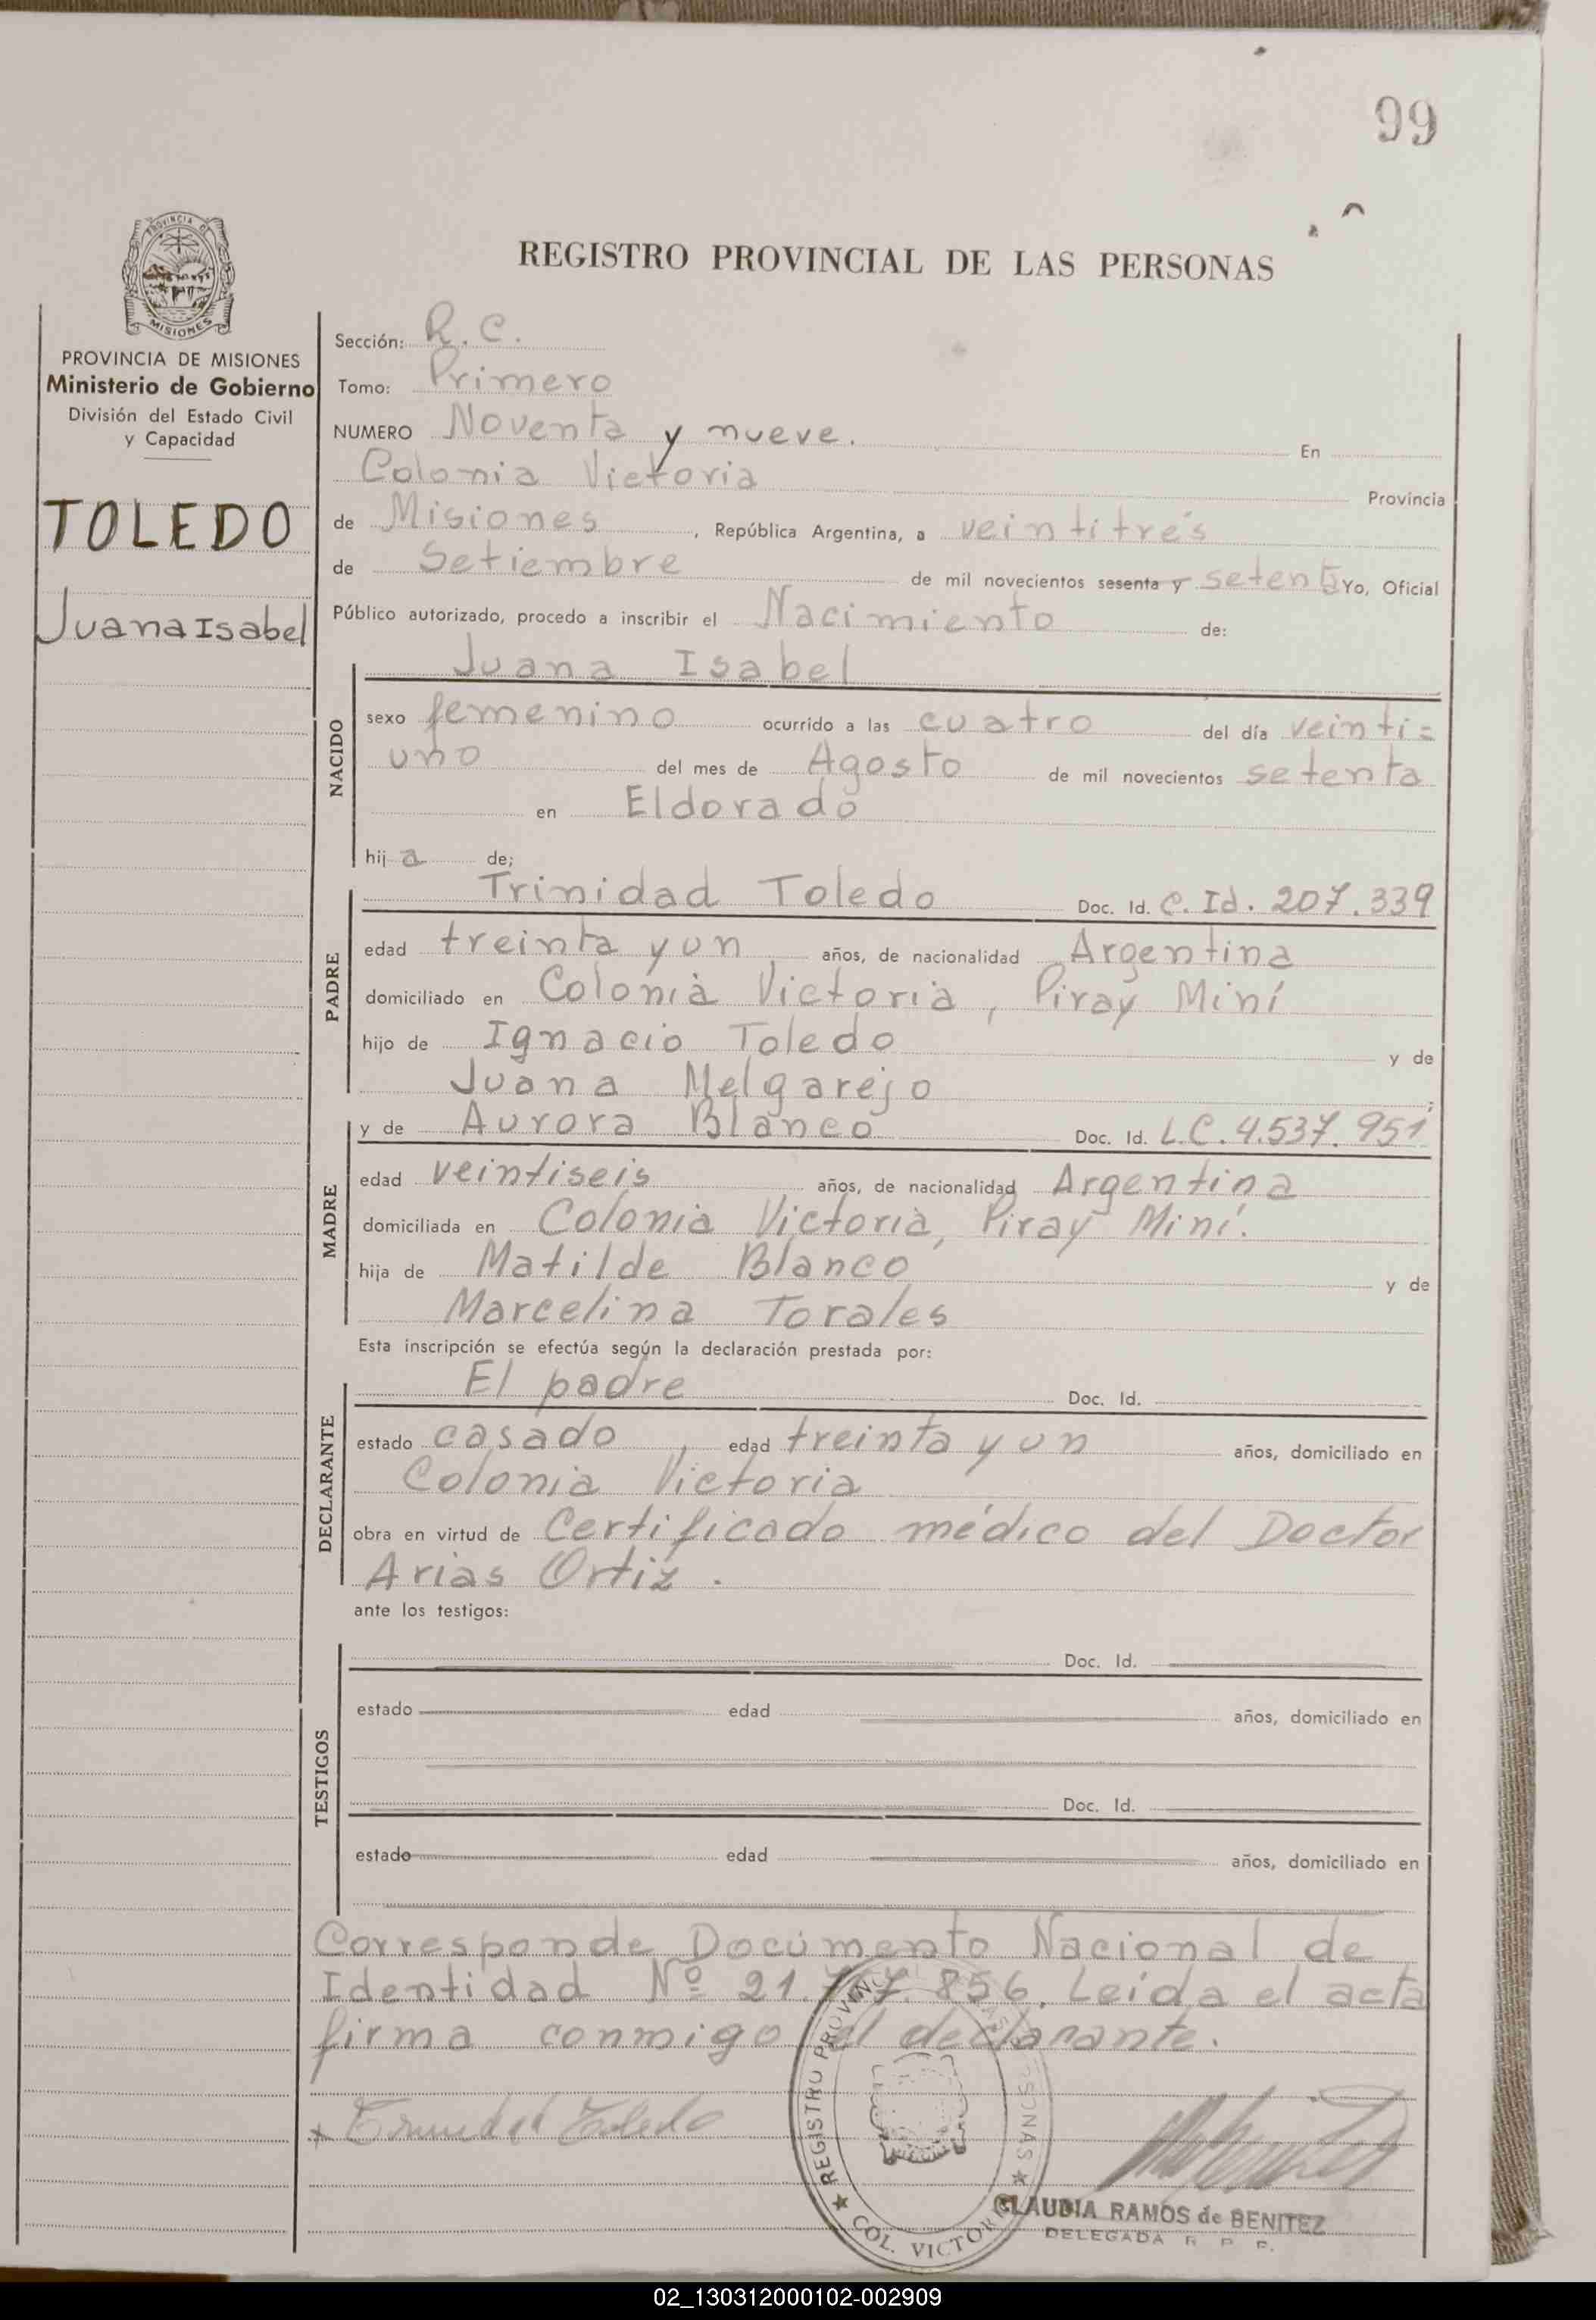 99
PROVINCIA DE
MISIONES
REGISTRO PROVINCIAL DE LAS PERSONAS
PROVINCIA DE MISIONES
Ministerio de Gobierno
División del Estado Civil
y Capacidad
TOLEDO
Juana Isabel
Sección: R.C.
Tomo: Primero
NUMERO Noventa y nueve. En
Colonia Victoria Provincia
de Misiones, República Argentina, a veintitrés
de Setiembre de mil novecientos sesenta y setenta Yo, Oficial
Público autorizado, procedo a inscribir el Nacimiento de:
NACIDO
Juana Isabel
sexo femenino ocurrido a las cuatro del día veinti=
uno del mes de Agosto de mil novecientos setenta
en Eldorado
hija de;
PADRE
Trinidad Toledo Doc. Id. C. Id. 207.339
edad treinta y un años, de nacionalidad Argentina
domiciliado en Colonia Victoria, Piray Miní
hijo de Ignacio Toledo y de
Juana Melgarejo;
MADRE
y de Aurora Blanco Doc. Id. L.C. 4.537.951
edad veintiseis años, de nacionalidad Argentina
domiciliada en Colonia Victoria, Piray Miní.
hija de Matilde Blanco y de
Marcelina Torales
Esta inscripción se efectúa según la declaración prestada por:
DECLARANTE
El padre Doc. Id.
estado casado, edad treinta y un años, domiciliado en
Colonia Victoria
obra en virtud de Certificado médico del Doctor
Arias Ortiz.
ante los testigos:
TESTIGOS
Doc. Id.
estado edad años, domiciliado en
Doc. Id.
estado edad años, domiciliado en
Corresponde Documento Nacional de
Identidad Nº 856. Leída el acta
firma conmigo el declarante.
Trinidad Toledo
REGISTRO PROVINCIAL
COL. VICTORIA
CLAUDIA RAMOS de BENITEZ
DELEGADA R. P. P.
02_130312000102-002909